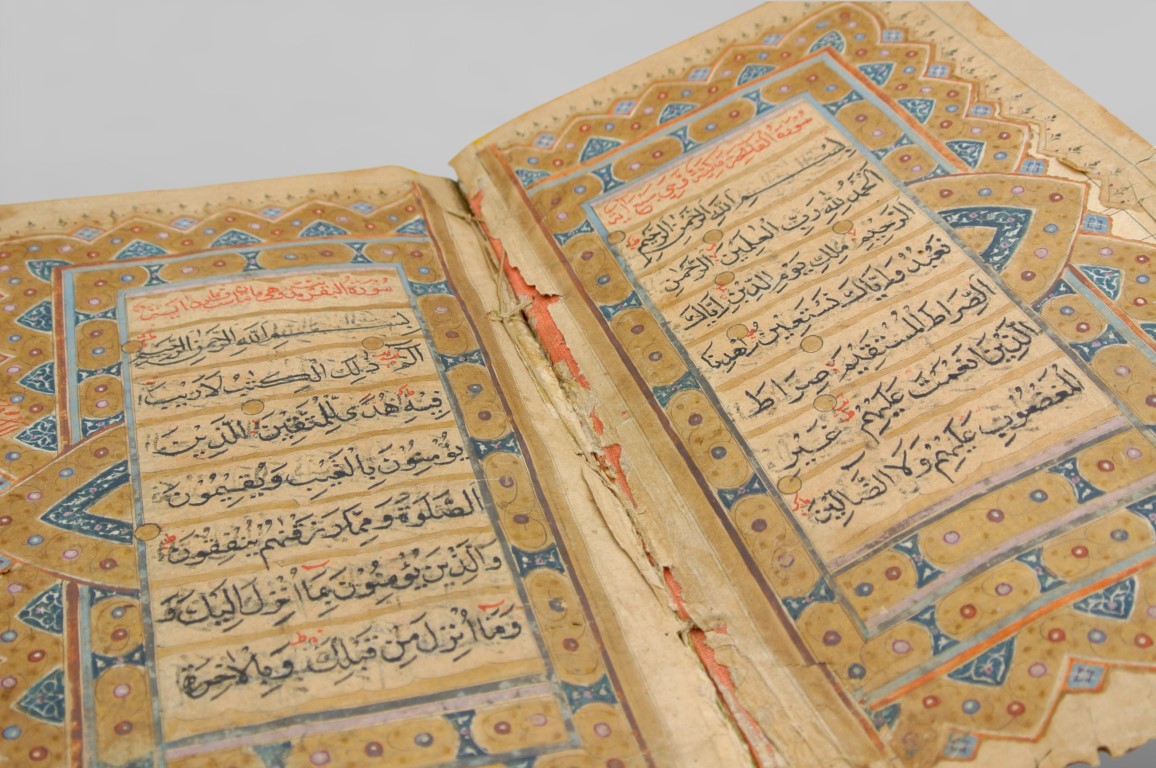 سورة الفاتحة مكية وهي سبع آيات
بسم الله الرحمن الرحيم
اَلْحَمْدُ لِلّٰهِ رَبِّ الْعٰلَمِيْنَ الرَّحْمٰنِ
الرَّحِيْمِ مٰلِكِ يَوْمِ الدِّيْنِ اِيَّاكَ
نَعْبُدُ وَاِيَّاكَ نَسْتَعِيْنُ اِهْدِنَا
الصِّرَاطَ الْمُسْتَقِيْمَ صِرَاطَ
الَّذِيْنَ اَنْعَمْتَ عَلَيْهِمْ غَيْرِ
الْمَغْضُوْبِ عَلَيْهِمْ وَلَا الضَّالِّيْنَ
سورة البقرة
بسم الله الرحمن الرحيم
الٓمّٓ ذٰلِكَ الْكِتٰبُ لَا رَيْبَ
فِيْهِ هُدًى لِّلْمُتَّقِيْنَ الَّذِيْنَ
يُؤْمِنُوْنَ بِالْغَيْبِ وَيُقِيْمُوْنَ
الصَّلٰوةَ وَمِمَّا رَزَقْنٰهُمْ يُنْفِقُوْنَ
وَالَّذِيْنَ يُؤْمِنُوْنَ بِمَا اُنْزِلَ اِلَيْكَ وَ
وَمَا اُنْزِلَ مِنْ قَبْلِكَ وَبِالْاٰخِرَةِ